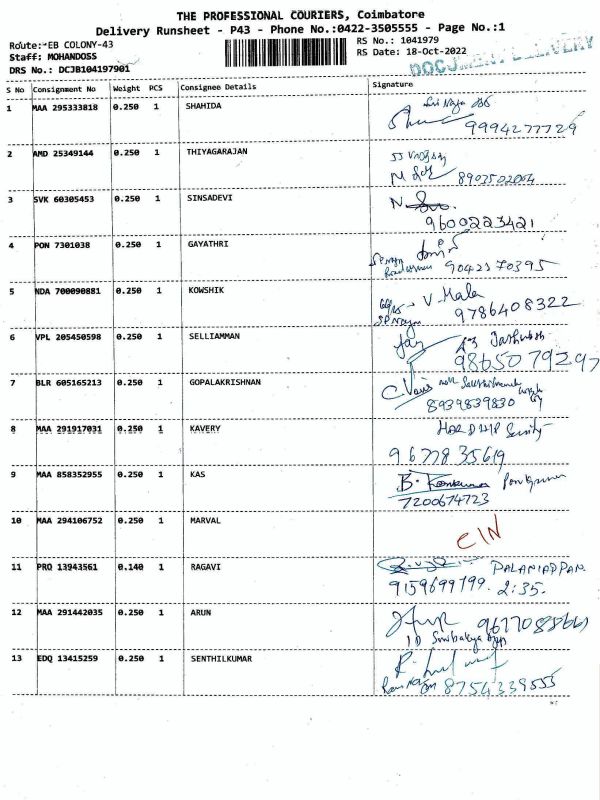 THE PROFESSIONAL COURIERS, Coimbatore
Delivery Runsheet - P43 - Phone No.:0422-3505555 - Page No.:1
Route:*EB COLONY-43
RS No.: 1041979
Staff: MOHANDOSS
RS Date: 18-Oct-2022
DRS No.: DCJB104197901
DOCUMENT DELIVERY
S No Consignment No Weight PCS Consignee Details Signature
1 MAA 295333818 0.250 1 SHAHIDA
9994277729
2 AMD 25349144 0.250 1 THIYAGARAJAN
8903502004
3 SVK 60305453 0.250 1 SINSADEVI
9600223421
4 PON 7301038 0.250 1 GAYATHRI
9042170395
5 NDA 700090881 0.250 1 KOWSHIK V. Mala
9786408322
6 VPL 205450598 0.250 1 SELLIAMMAN
9865079297
7 BLR 605165213 0.250 1 GOPALAKRISHNAN
8939839830
8 MAA 291917031 0.250 1 KAVERY
9677835619
9 MAA 858352955 0.250 1 KAS
7200674723
10 MAA 294106752 0.250 1 MARVAL
CIN
11 PRQ 13943561 0.140 1 RAGAVI PALANIAPPAN.
9159699799. 2:35.
12 MAA 291442035 0.250 1 ARUN
13 EDQ 13415259 0.250 1 SENTHILKUMAR
8754339555